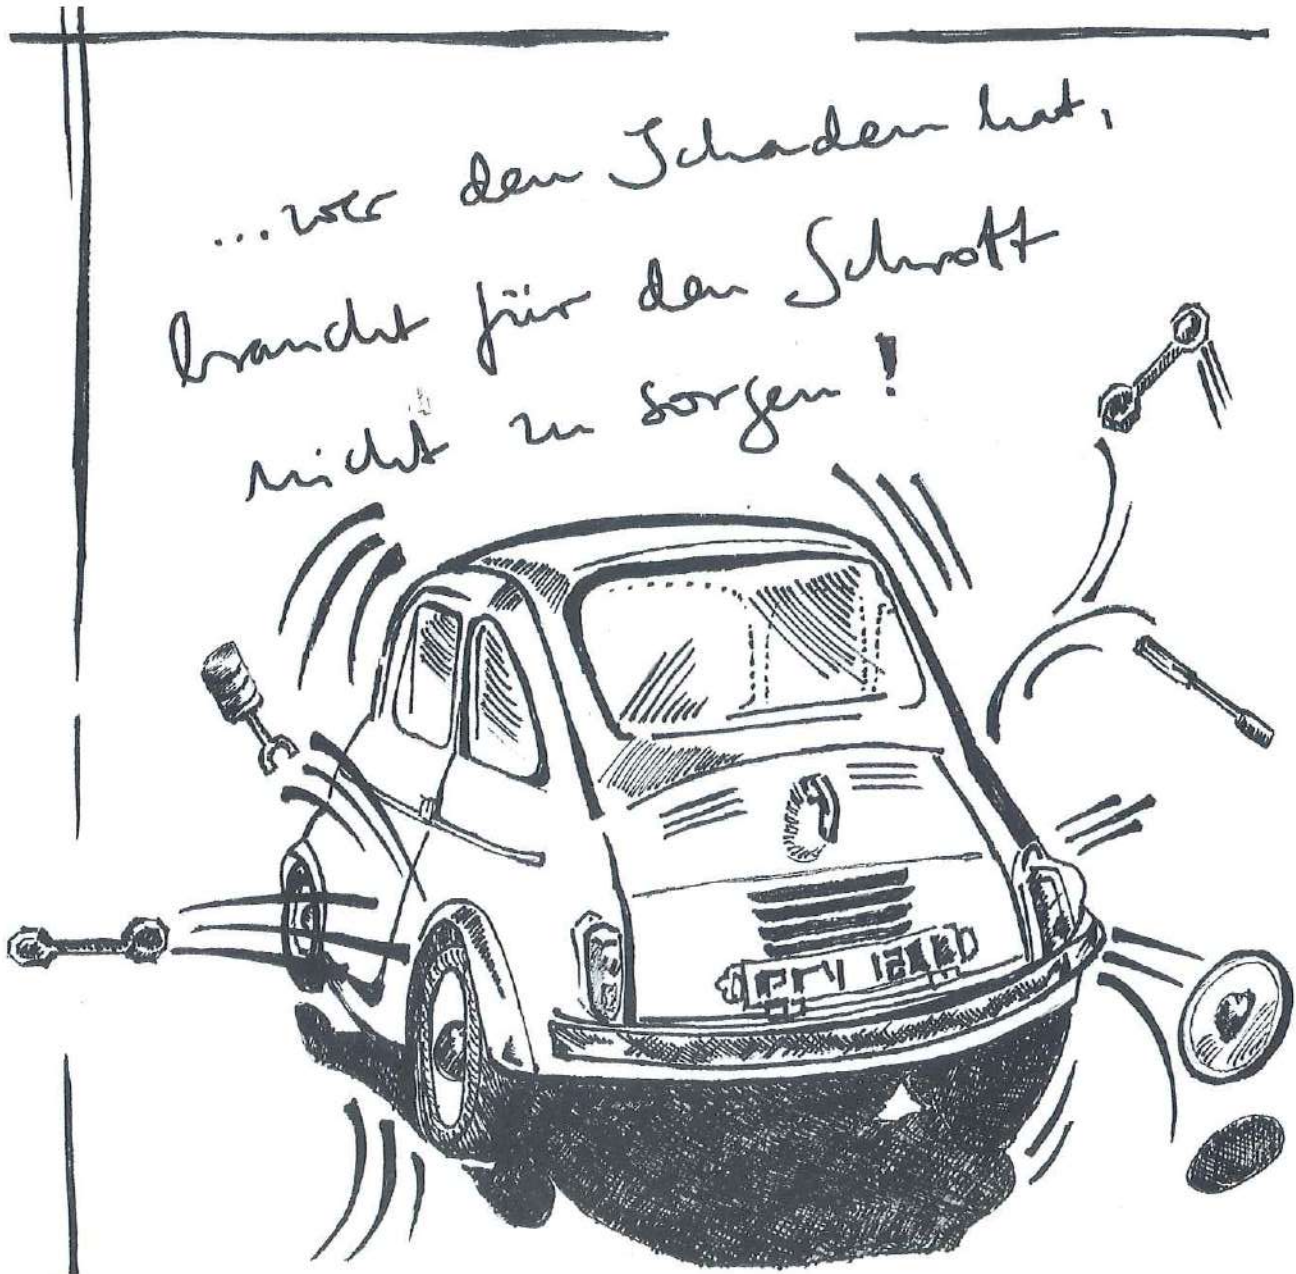 ...wer den Schaden hat,
braucht für den Schrott
nicht zu sorgen!